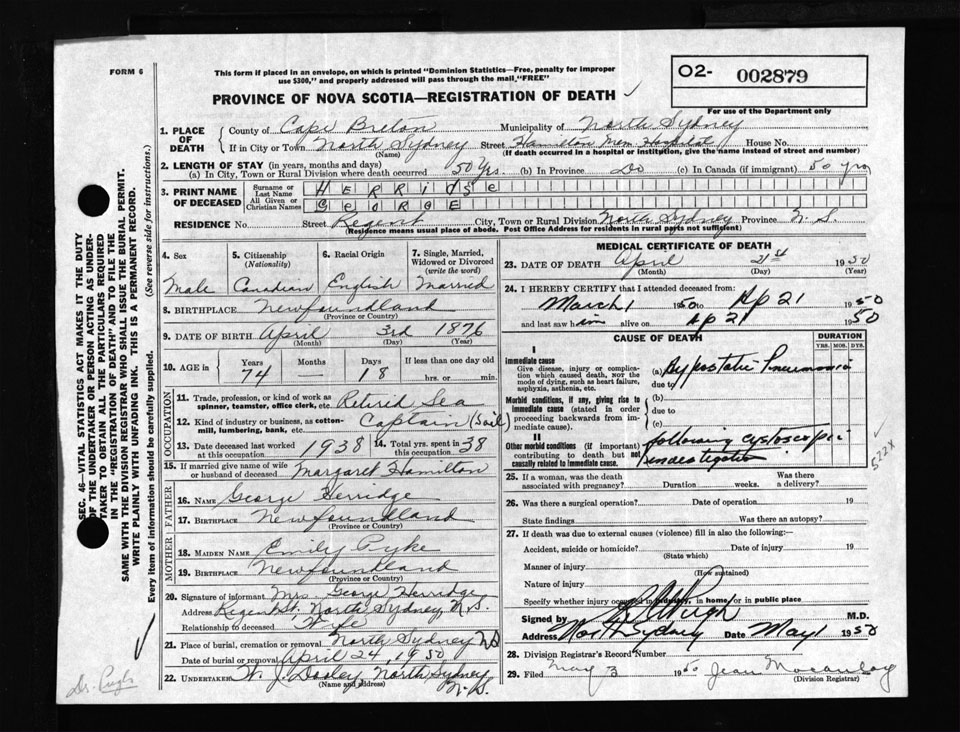 FORM 6
This form if placed in an envelope, on which is printed "Dominion Statistics—Free, penalty for improper
use $300," and properly addressed will pass through the mail, "FREE"
O2- 002879
For use of the Department only
PROVINCE OF NOVA SCOTIA—REGISTRATION OF DEATH
1. PLACE OF DEATH
County of Cape Breton Municipality of North Sydney
If in City or Town North Sydney Street Hamilton Mem Hospital House No.
(Name) (If death occurred in a hospital or institution, give the name instead of street and number)
2. LENGTH OF STAY (in years, months and days)
(a) In City, Town or Rural Division where death occurred 50 Yrs. (b) In Province Do (c) In Canada (if immigrant) 50 yrs
3. PRINT NAME OF DECEASED
Surname or Last Name HERRIDGE
All Given or Christian Names GEORGE
RESIDENCE No. Street Regent City, Town or Rural Division North Sydney Province N.S.
(Residence means usual place of abode. Post Office Address for residents in rural parts not sufficient)
4. Sex
5. Citizenship (Nationality)
6. Racial Origin
7. Single, Married, Widowed or Divorced (write the word)
Male Canadian English Married
8. BIRTHPLACE Newfoundland
(Province or Country)
9. DATE OF BIRTH April 3rd 1876
(Month) (Day) (Year)
10. AGE in Years Months Days If less than one day old
74 — 18 hrs. or min.
OCCUPATION
11. Trade, profession, or kind of work as spinner, teamster, office clerk, etc. Retired Sea
12. Kind of industry or business, as cotton-mill, lumbering, bank, etc. Captain (Sail)
13. Date deceased last worked at this occupation 1938
14. Total yrs. spent in this occupation 38
15. If married give name of wife or husband of deceased Margaret Hamilton
FATHER
16. NAME George Herridge
17. BIRTHPLACE Newfoundland
(Province or Country)
MOTHER
18. MAIDEN NAME Emily Pyke
19. BIRTHPLACE Newfoundland
(Province or Country)
20. Signature of informant Mrs. George Herridge
Address Regent St, North Sydney, N.S.
Relationship to deceased Wife
21. Place of burial, cremation or removal North Sydney NS
Date of burial or removal April 24 1950
22. UNDERTAKER W. J. Dooley North Sydney
N.S.
(Name and address)
MEDICAL CERTIFICATE OF DEATH
23. DATE OF DEATH April 21st 1950
(Month) (Day) (Year)
24. I HEREBY CERTIFY that I attended deceased from:
March 1 1950 to Ap 21 1950
and last saw him alive on Ap 21 1950
CAUSE OF DEATH
DURATION
YRS. MOS. DYS.
I
Immediate cause
Give disease, injury or complication which caused death, NOT the mode of dying, such as heart failure, asphyxia, asthenia, etc.
(a) Hypostatic Pneumonia
due to
Morbid conditions, if any, giving rise to immediate cause (stated in order proceeding backwards from immediate cause).
(b)
due to
(c)
II
Other morbid conditions (if important) contributing to death but not causally related to immediate cause.
following cystoscopic
investigation
522X
25. If a woman, was the death associated with pregnancy? Duration weeks. Was there a delivery?
26. Was there a surgical operation? Date of operation 19
State findings Was there an autopsy?
27. If death was due to external causes (violence) fill in also the following:
Accident, suicide or homicide? Date of injury 19
(State which)
Manner of injury
(How sustained)
Nature of injury
Specify whether injury occurred in industry, in home or in public place
Signed by Pugh M.D.
Address North Sydney Date May 1 1950
28. Division Registrar's Record Number
29. Filed May 3 1950 Jean Macaulay
(Division Registrar)
SEC. 46—VITAL STATISTICS ACT MAKES IT THE DUTY
OF THE UNDERTAKER OR PERSON ACTING AS UNDER-
TAKER TO OBTAIN ALL THE PARTICULARS REQUIRED
IN THE "REGISTRATION OF DEATH" AND TO FILE THE
SAME WITH THE DIVISION REGISTRAR WHO SHALL ISSUE THE BURIAL PERMIT.
WRITE PLAINLY WITH UNFADING INK. THIS IS A PERMANENT RECORD.
Every item of information should be carefully supplied. (See reverse side for instructions.)
Dr. Pugh